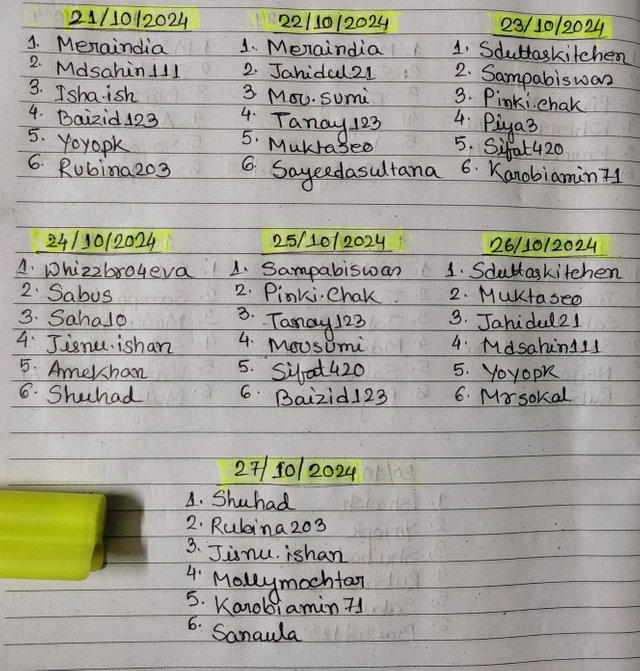 21/10/2024
1. Meraindia
2. Mdsahin111
3. Isha.ish
4. Baizid123
5. Yoyopk
6. Rubina203
22/10/2024
1. Meraindia
2. Jahidul21
3. Mou.sumi
4. Tanay123
5. Muktaseo
6. Sayeedasultana
23/10/2024
1. Sduttaskitchen
2. Sampabiswas
3. Pinki.chak
4. Piya3
5. Sifat420
6. Karobiamin71
24/10/2024
1. Whizzbro4eva
2. Sabus
3. Saha10
4. Jisnu.ishan
5. Amekhan
6. Shuhad
25/10/2024
1. Sampabiswas
2. Pinki.Chak
3. Tanay123
4. Mousumi
5. Sifat420
6. Baizid123
26/10/2024
1. Sduttaskitchen
2. Muktaseo
3. Jahidul21
4. Mdsahin111
5. Yoyopk
6. Mrsokal
27/10/2024
1. Shuhad
2. Rubina203
3. Jisnu.ishan
4. Mollymochtar
5. Karobiamin71
6. Sanaula